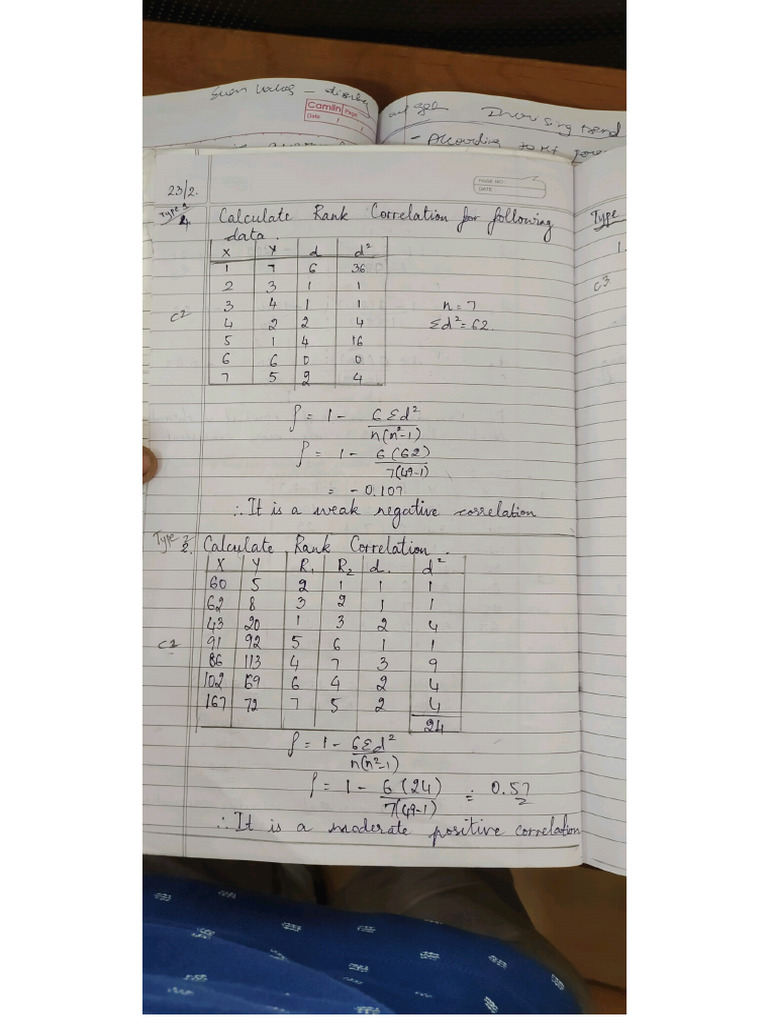 Camlin Page
Date
- According
PAGE NO:
DATE
23/2.
Type 1
Calculate Rank Correlation for following
data.
X Y d d²
1 7 6 36
2 3 1 1
3 4 1 1
n = 7
C2
4 2 2 4
Σd² = 62.
5 1 4 16
6 6 0 0
7 5 2 4
ρ = 1 - 6Σd² / n(n²-1)
ρ = 1 - 6(62) / 7(49-1)
= -0.107
∴ It is a weak negative correlation
Type 2
2. Calculate Rank Correlation.
X Y R₁ R₂ d. d²
60 5 2 1 1 1
62 8 3 2 1 1
43 20 1 3 2 4
C1
91 92 5 6 1 1
86 113 4 7 3 9
102 69 6 4 2 4
167 72 7 5 2 4
24
ρ = 1 - 6Σd² / n(n²-1)
ρ = 1 - 6(24) / 7(49-1) = 0.57
∴ It is a moderate positive correlation
Type
1.
C3